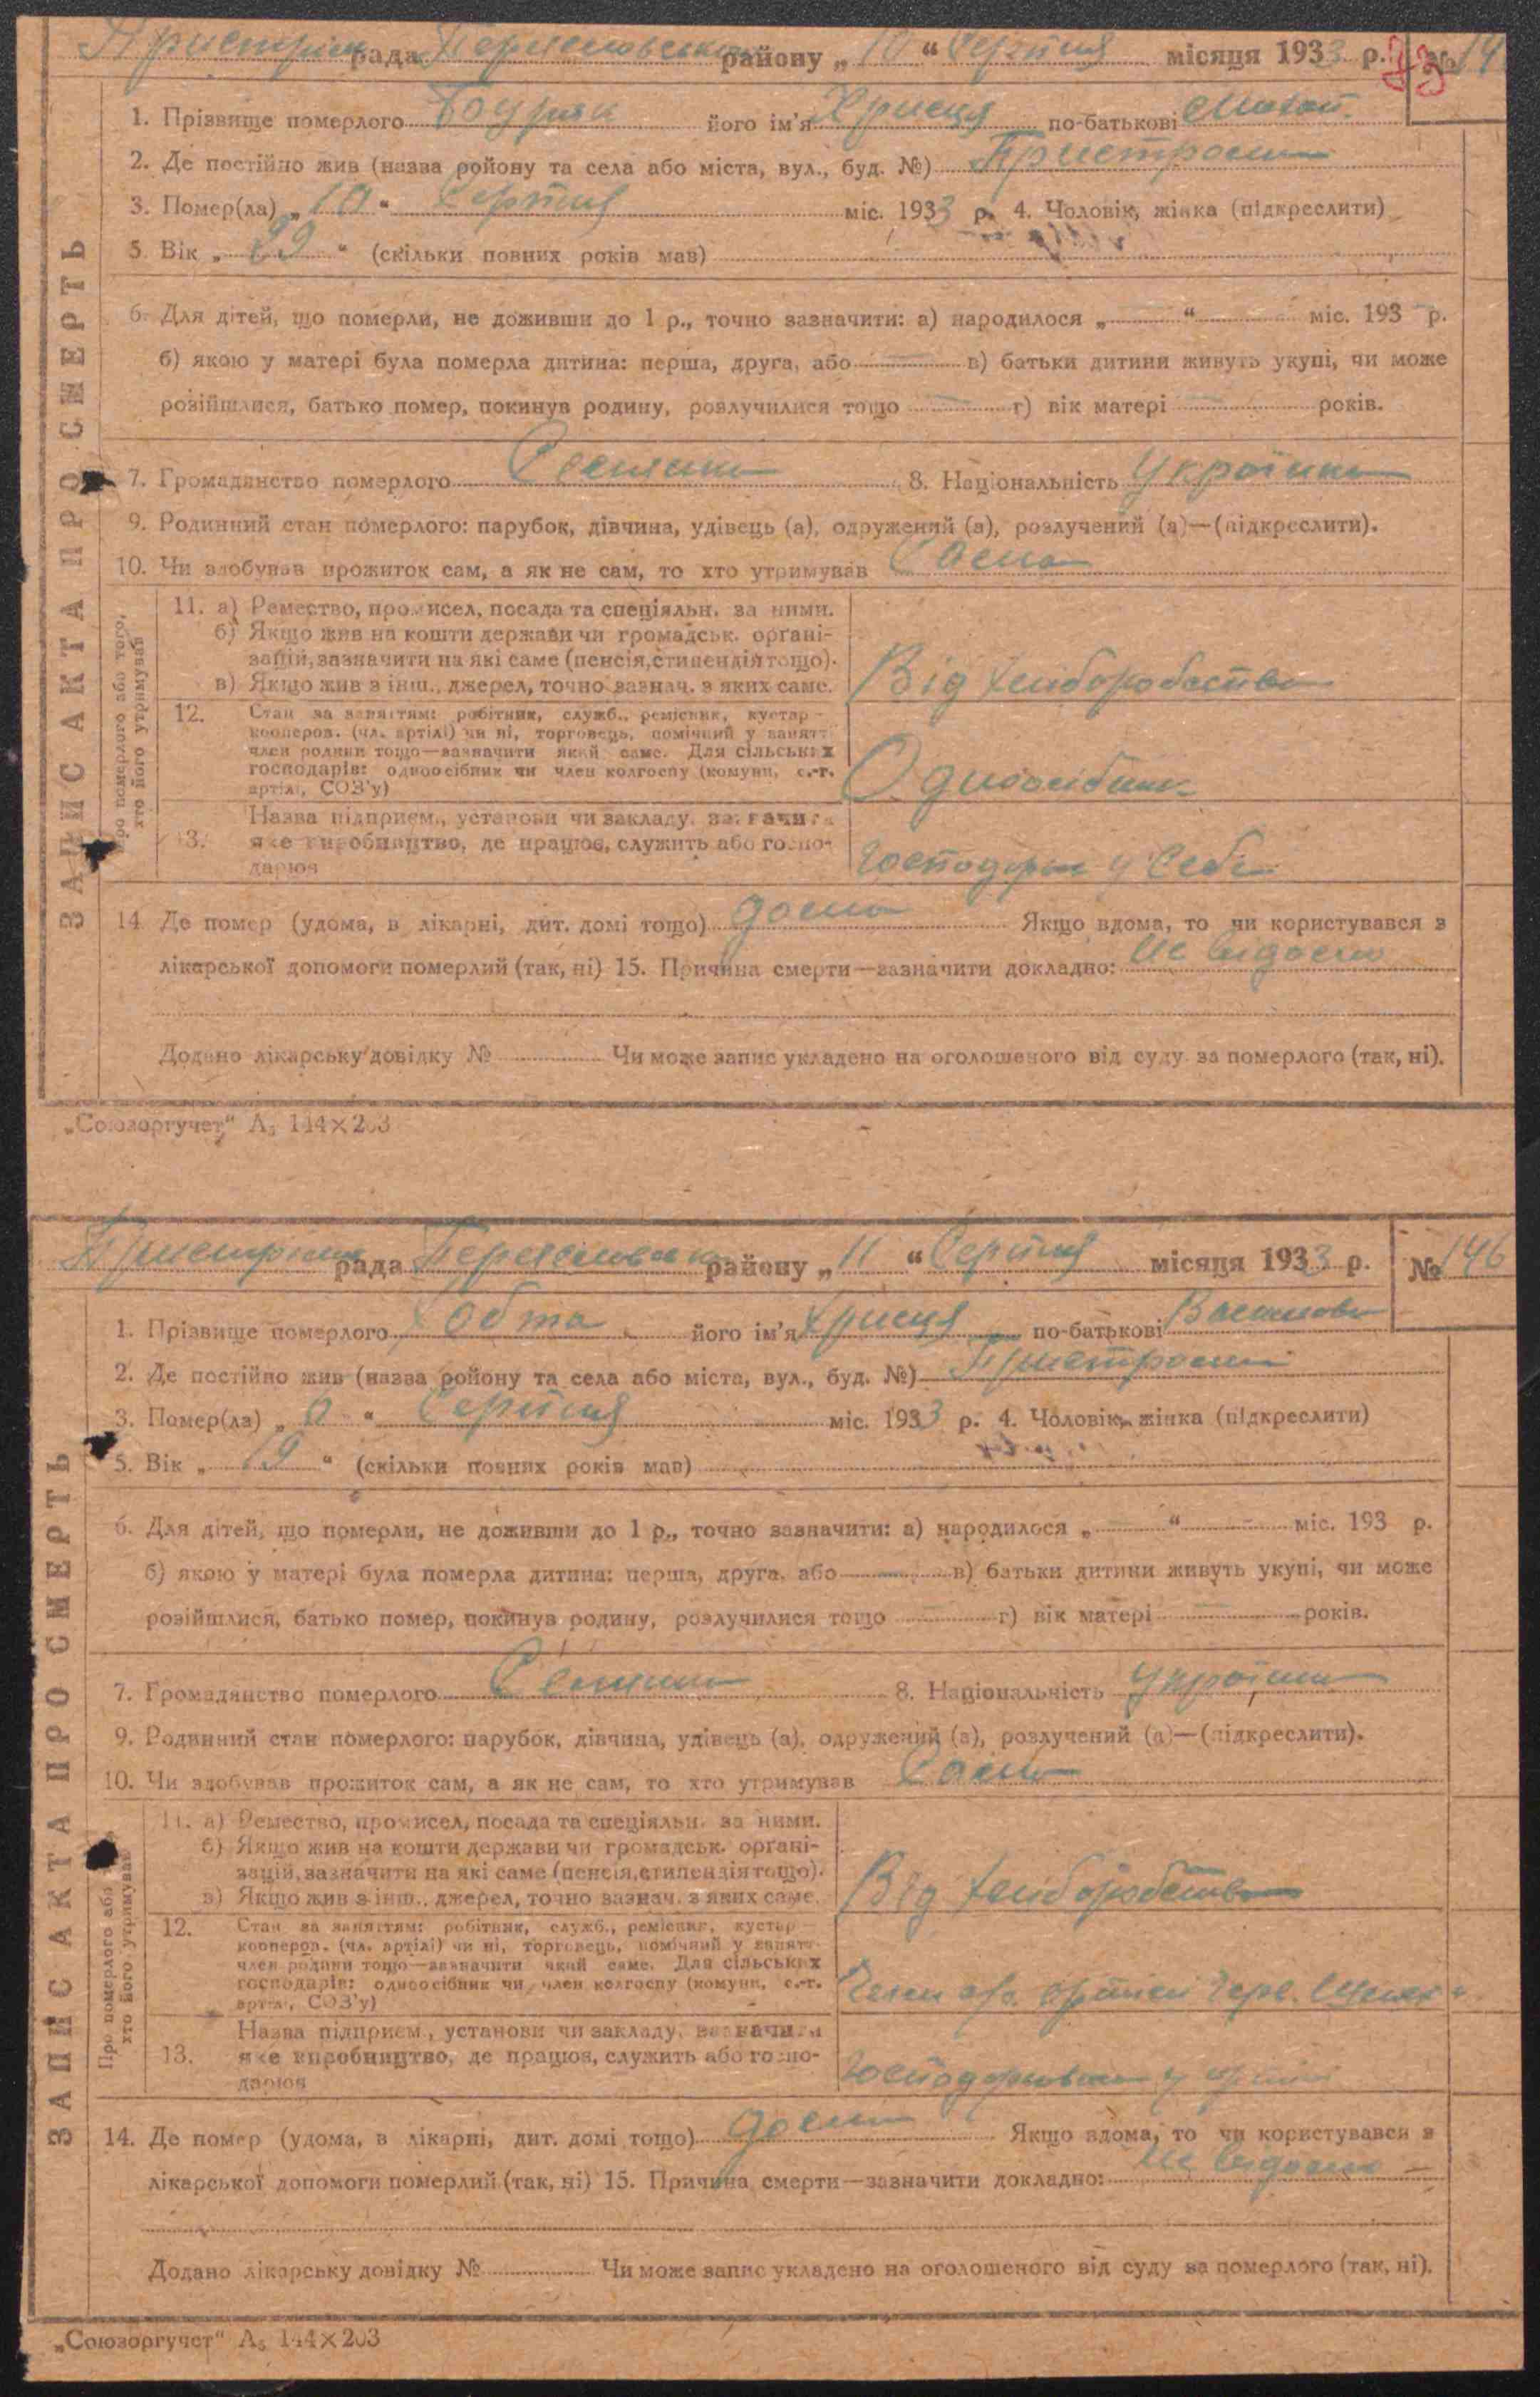 рада района „ 10 “ Серпня місяця 1933 р. № 14
1. Прізвище померлого його ім'я Хрисця по-батькові
2. Де постійно жив (назва ройону та села або міста, вул., буд. №) Пристроми
3. Помер(ла) „ 10 “ Серпня міс. 1933 р. 4. Чоловік, жінка (підкреслити)
5. Вік „ 29 “ (скільки повних років мав)
6. Для дітей, що померли, не доживши до 1 р., точно зазначити: а) народилося „ — “ — міс. 193 р.
б) якою у матері була померла дитина: перша, друга, або — в) батьки дитини живуть укупі, чи може
розійшлися, батько помер, покинув родину, розлучилися тощо — г) вік матері — років.
7. Громадянство померлого 8. Національність Українка
9. Родинний стан померлого: парубок, дівчина, удівець (а), одружений (а), розлучений (а)—(підкреслити).
10. Чи здобував прожиток сам, а як не сам, то хто утримував Сама
Про померлого або того,
хто його утримував
11. а) Ремество, промисел, посада та спеціяльн. за ними.
б) Якщо жив на кошти держави чи громадськ. органі-
зацій, зазначити на які саме (пенсія, стипендія тощо).
в) Якщо жив з інш., джерел, точно зазнач. з яких саме.
Від хліборобства
12. Стан за заняттям: робітник, служб., ремісник, кустар—
кооперов. (чл. артілі) чи ні, торговець, помічний у занятт
член родини тощо—зазначити який саме. Для сільських
господарів: одноосібник чи член колгоспу (комуни, с.-г.
артілі, СОЗ'у)
Одноосібник
13. Назва підприєм., установи чи закладу, зазначити
яке виробництво, де працює, служить або госпо-
дарює
у себе
14. Де помер (удома, в лікарні, дит. домі тощо) дома Якщо вдома, то чи користувався з
лікарської допомоги померлий (так, ні) 15. Причина смерти—зазначити докладно: Не відомо
Додано лікарську довідку № Чи може запис укладено на оголошеного від суду за померлого (так, ні).
ЗАПИС АКТА ПРО СМЕРТЬ
„Союзоргучет“ А5 144×203
рада района „ 11 “ Серпня місяця 1933 р. № 146
1. Прізвище померлого його ім'я Хрисця по-батькові
2. Де постійно жив (назва ройону та села або міста, вул., буд. №) Пристроми
3. Помер(ла) „ “ Серпня міс. 1933 р. 4. Чоловік, жінка (підкреслити)
5. Вік „ 19 “ (скільки повних років мав)
6. Для дітей, що померли, не доживши до 1 р., точно зазначити: а) народилося „ — “ — міс. 193 р.
б) якою у матері була померла дитина: перша, друга, або — в) батьки дитини живуть укупі, чи може
розійшлися, батько помер, покинув родину, розлучилися тощо — г) вік матері — років.
7. Громадянство померлого 8. Національність Українка
9. Родинний стан померлого: парубок, дівчина, удівець (а), одружений (а), розлучений (а)—(підкреслити).
10. Чи здобував прожиток сам, а як не сам, то хто утримував Сама
Про померлого або
хто його утримував
11. а) Ремество, промисел, посада та спеціяльн. за ними.
б) Якщо жив на кошти держави чи громадськ. органі-
зацій, зазначити на які саме (пенсія, стипендія тощо).
в) Якщо жив з інш., джерел, точно зазнач. з яких саме.
Від хліборобства
12. Стан за заняттям: робітник, служб., ремісник, кустар—
кооперов. (чл. артілі) чи ні, торговець, помічний у занятт
член родини тощо—зазначити який саме. Для сільських
господарів: одноосібник чи член колгоспу (комуни, с.-г.
артілі, СОЗ'у)
Член артілі Черв.
13. Назва підприєм., установи чи закладу, зазначити
яке виробництво, де працює, служить або госпо-
дарює
у артілі
14. Де помер (удома, в лікарні, дит. домі тощо) дома Якщо вдома, то чи користувався з
лікарської допомоги померлий (так, ні) 15. Причина смерти—зазначити докладно: Не відомо
Додано лікарську довідку № Чи може запис укладено на оголошеного від суду за померлого (так, ні).
ЗАПИС АКТА ПРО СМЕРТЬ
„Союзоргучет“ А5 144×203